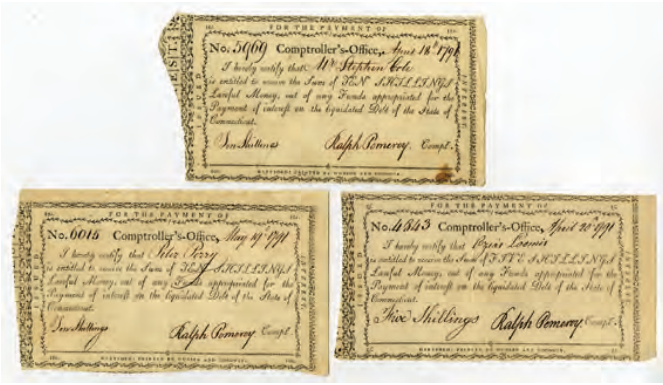 FOR THE PAYMENT OF
No. 5969 Comptroller's-Office, April 18th 1791
I hereby certify that Mr Stephen Cole
is entitled to receive the Sum of TEN SHILLINGS
Lawful Money, out of any Funds appropriated for the
Payment of interest on the liquidated Debt of the State of
Connecticut.
Ten Shillings Ralph Pomeroy. Compt.
HARTFORD: PRINTED BY HUDSON AND GOODWIN.
INTEREST.
FOR THE PAYMENT OF
No. 6015 Comptroller's-Office, May 19th 1791
I hereby certify that Perry
is entitled to receive the Sum of TEN SHILLINGS
Lawful Money, out of any Funds appropriated for the
Payment of interest on the liquidated Debt of the State of
Connecticut.
Ten Shillings Ralph Pomeroy. Compt.
HARTFORD: PRINTED BY HUDSON AND GOODWIN.
FOR THE PAYMENT OF
No. 4543 Comptroller's-Office, April 20th 1791
I hereby certify that Loomis
is entitled to receive the Sum of FIVE SHILLINGS
Lawful Money, out of any Funds appropriated for the
Payment of interest on the liquidated Debt of the State of
Connecticut.
Five Shillings Ralph Pomeroy. Compt.
HARTFORD: PRINTED BY HUDSON AND GOODWIN.